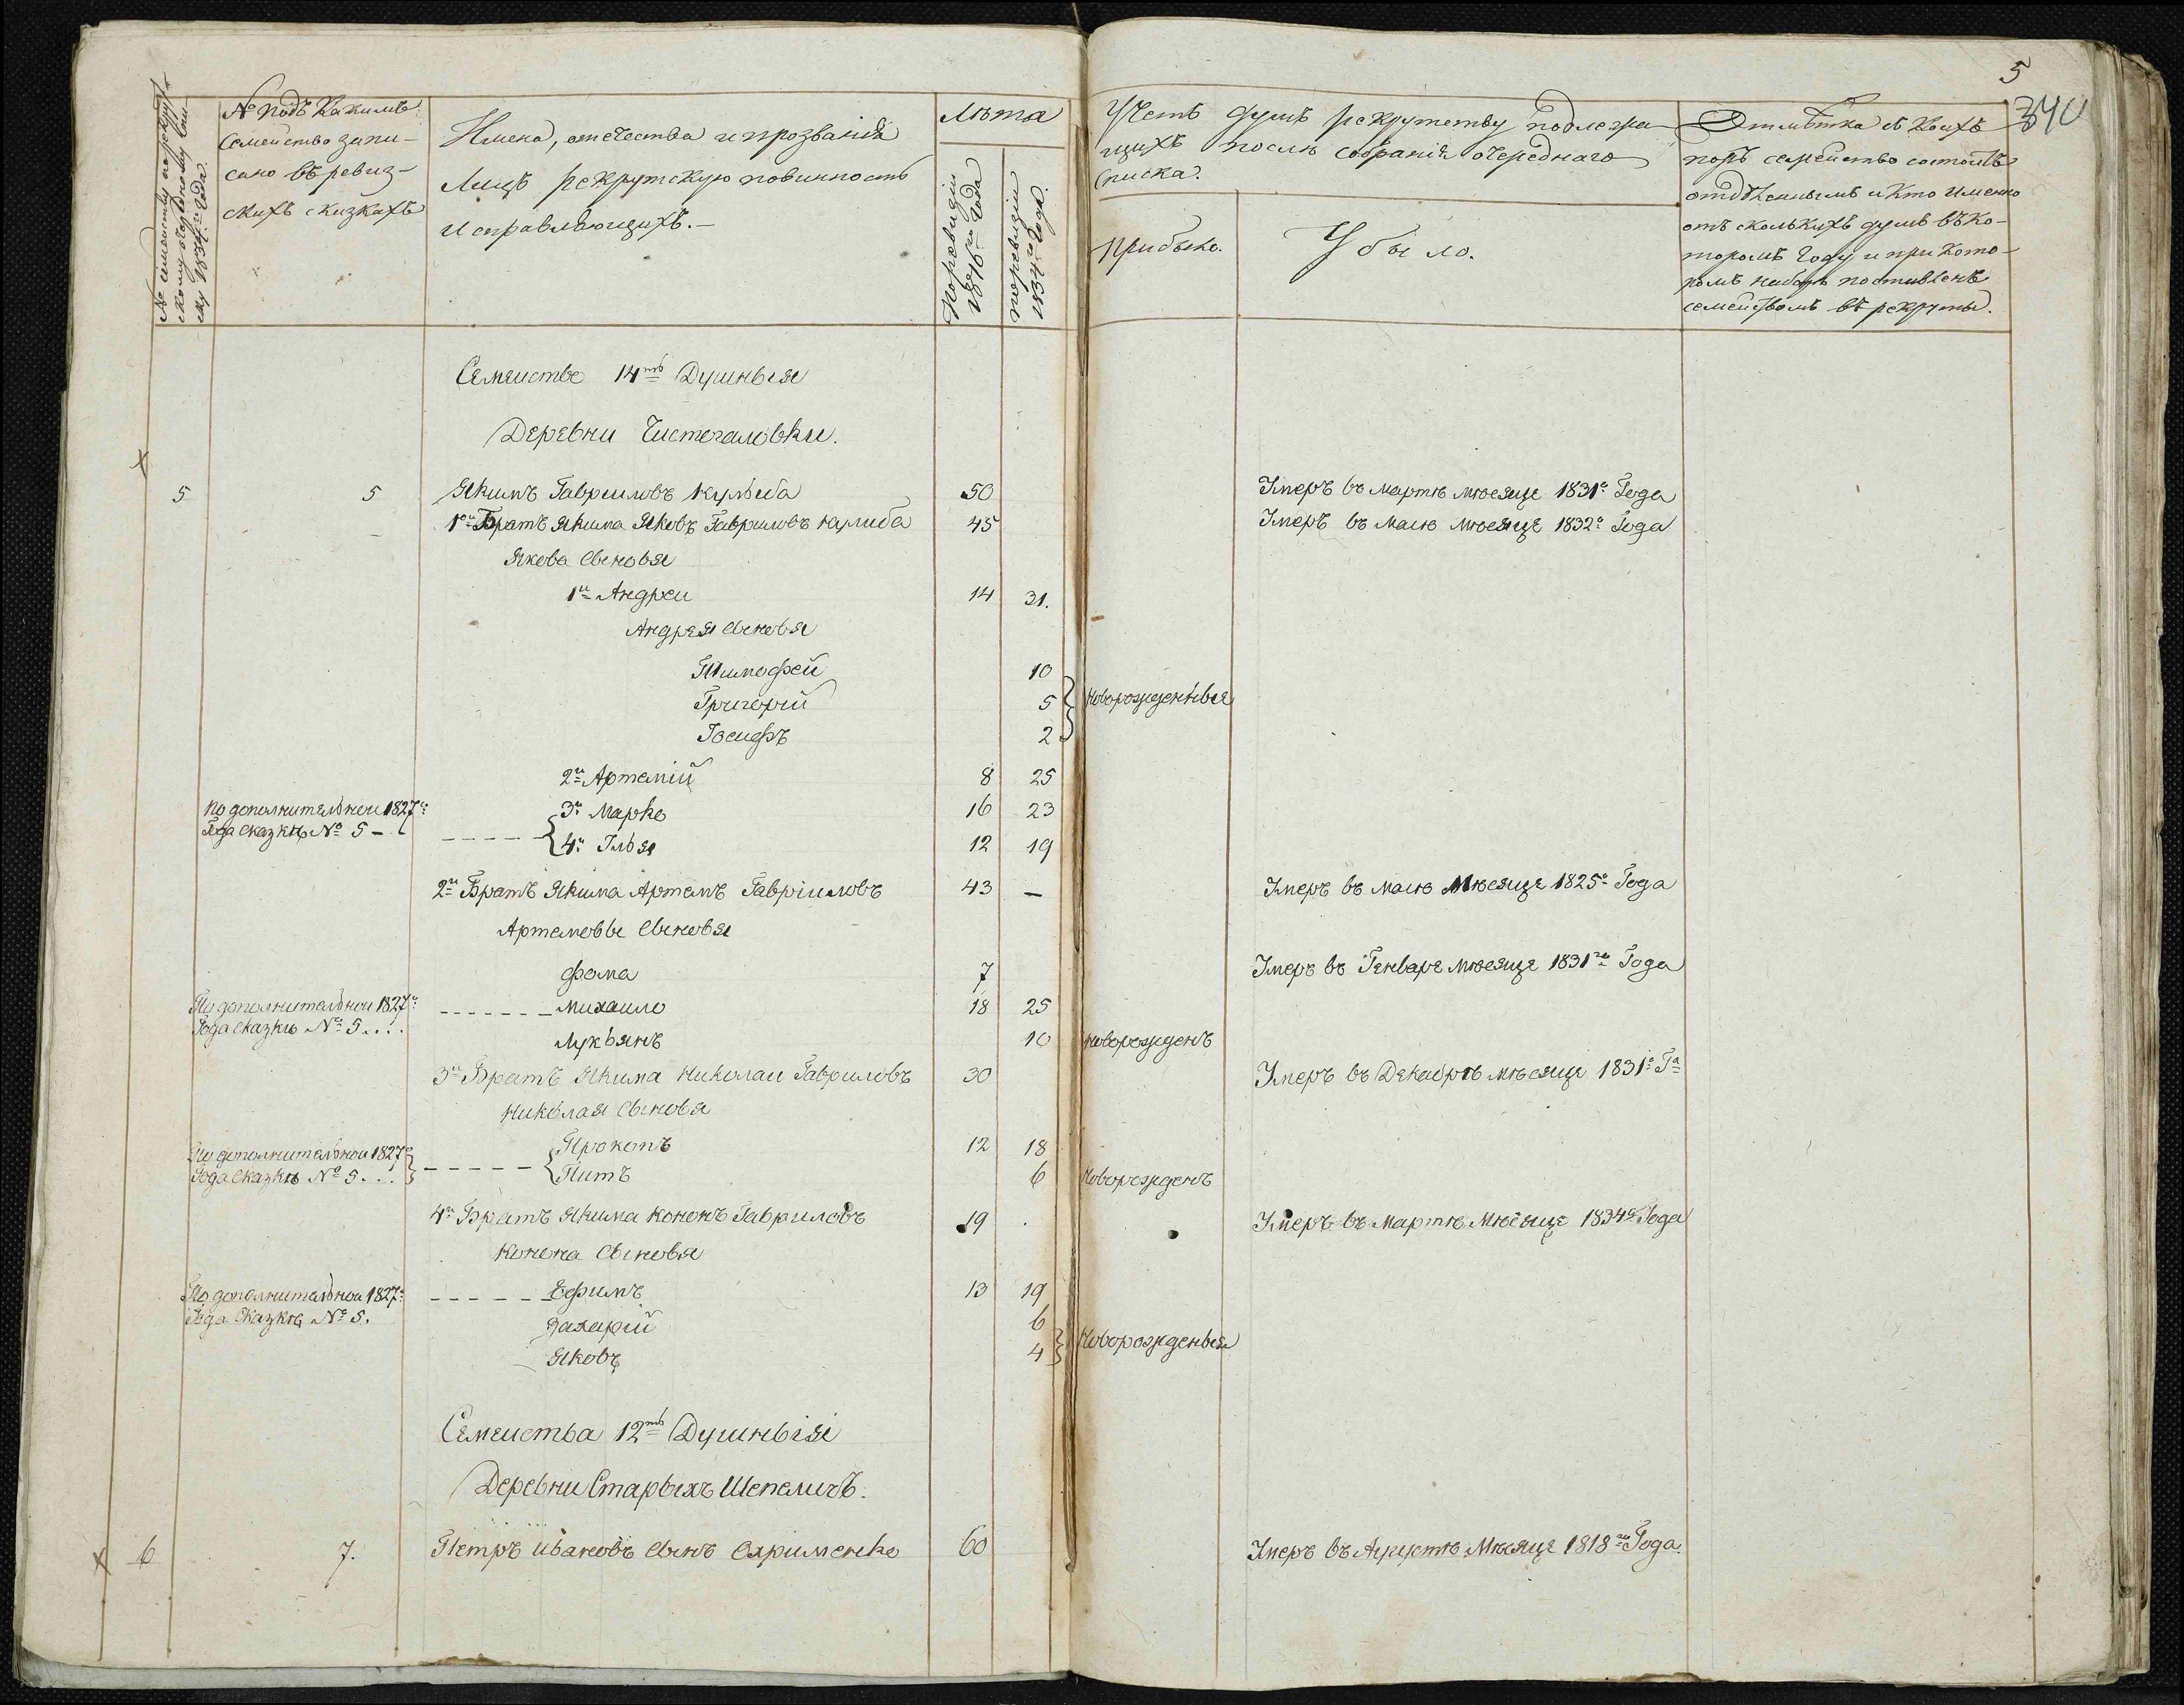 5
340
№ семейству по рекрутскому очередному списку 1834го Года.
№ подъ Какимъ
Семейство запи-
сано въ ревиз-
скихъ сказкахъ
Имена, отечества и прозванія
Лицъ рекрутскую повинность
исправляющихъ.-
Лѣта
По ревизіи 1816го Года
по ревизіи 1834го Года.
Учетъ душъ рекрутству подлежа-
щихъ послѣ собранія очереднаго
списка.
Прибыло.
Убыло.
Отмѣтка съ Коихъ
поръ семейство состоитъ
отдѣленнымъ и Кто именно
отъ сколькихъ душъ въ Ко-
торомъ Году и при Кото-
ромъ наборѣ поставленъ
семействомъ въ рекруты.
Семеиство 14ть Душныя
Деревни Чистогаловки.
5 5 Якимъ Гавриловъ Кулиба 50 Умеръ въ Мартѣ мѣсяце 1831го Года
1й Братъ Якима Яковъ Гавриловъ Кулиба 45 Умеръ въ Маѣ Мѣсяце 1832го Года
Якова Сыновья
1й Андреи 14 31.
Андрея Сыновья
Тимофей 10
Григорій 5 Новорожденныя
Іосифъ 2
2й Артемій 8 25
По дополнительнои 1827го 3й Марко 16 23
Года Сказкѣ № 5 - - 4й Илья 12 19
2й Братъ Якима Артемъ Гавріиловъ 43 — Умеръ въ Маѣ Мѣсяце 1825го Года
Артемовы Сыновья
Фома 7 Умеръ въ Генваре мѣсяце 1831го Года
По дополнительнои 1827го - - - - - - - Михаило 18 25
Года Сказкѣ № 5 . . . .
Лукьянъ 10 Новорожденъ
3й Братъ Якима Николаи Гавриловъ 30 Умеръ въ Декабрѣ мѣсяце 1831го Га
Николая Сыновья
Прокопъ 12 18
По дополнительнои 1827го
Года Сказкѣ № 5 . . . - - - - - Титъ 6 Новорожденъ
4й Братъ Якима Кононъ Гавриловъ 19 Умеръ въ Мартѣ Мѣсяце 1834го Года
Конона Сыновья
По дополнительнои 1827го - - - - - - Ефимъ 13 19
Года Сказкѣ № 5. Захарій 6
Яковъ 4 Новорожденыя
Семеиства 12ть Душныя
Деревни Старыхъ Шепеличъ.
6 7. Петръ Ивановъ Сынъ Охрименко 60 Умеръ въ Августѣ Мѣсяце 1818го Года.